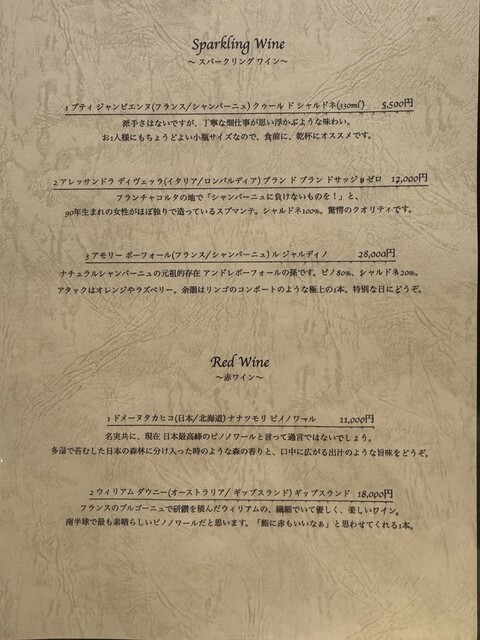 Sparkling Wine
～ スパークリング ワイン～
1 プティ ジャンピエンヌ(フランス/シャンパーニュ) クゥール ド シャルドネ(330㎖) 5,500円
派手さはないですが、丁寧な畑仕事が思い浮かぶような味わい。
お1人様にもちょうどよい小瓶サイズなので、食前に、乾杯にオススメです。
2 アレッサンドラ ディヴェッラ(イタリア/ロンバルディア) ブラン ド ブラン ドサッジョ ゼロ 12,000円
フランチャコルタの地で「シャンパーニュに負けないものを！」と、
90年生まれの女性がほぼ独りで造っているスプマンテ。シャルドネ100%。驚愕のクオリティです。
3 アモリー ボーフォール(フランス/シャンパーニュ) ル ジャルディノ 28,000円
ナチュラルシャンパーニュの元祖的存在 アンドレボーフォールの孫です。ピノ80%、シャルドネ20%。
アタックはオレンジやラズベリー。余韻はリンゴのコンポートのような極上の1本。特別な日にどうぞ。
Red Wine
～赤ワイン～
1 ドメーヌタカヒコ(日本/北海道) ナナツモリ ピノノワール 11,000円
名実共に、現在 日本最高峰のピノノワールと言って過言ではないでしょう。
多湿で苔むした日本の森林に分け入った時のような森の香りと、口中に広がる出汁のような旨味をどうぞ。
2 ウィリアム ダウニー(オーストラリア/ ギップスランド) ギップスランド 18,000円
フランスのブルゴーニュで研鑽を積んだウィリアムの、繊細でいて優しく、美しいワイン。
南半球で最も素晴らしいピノノワールだと思います。「鮨に赤もいいなぁ」と思わせてくれる1本。